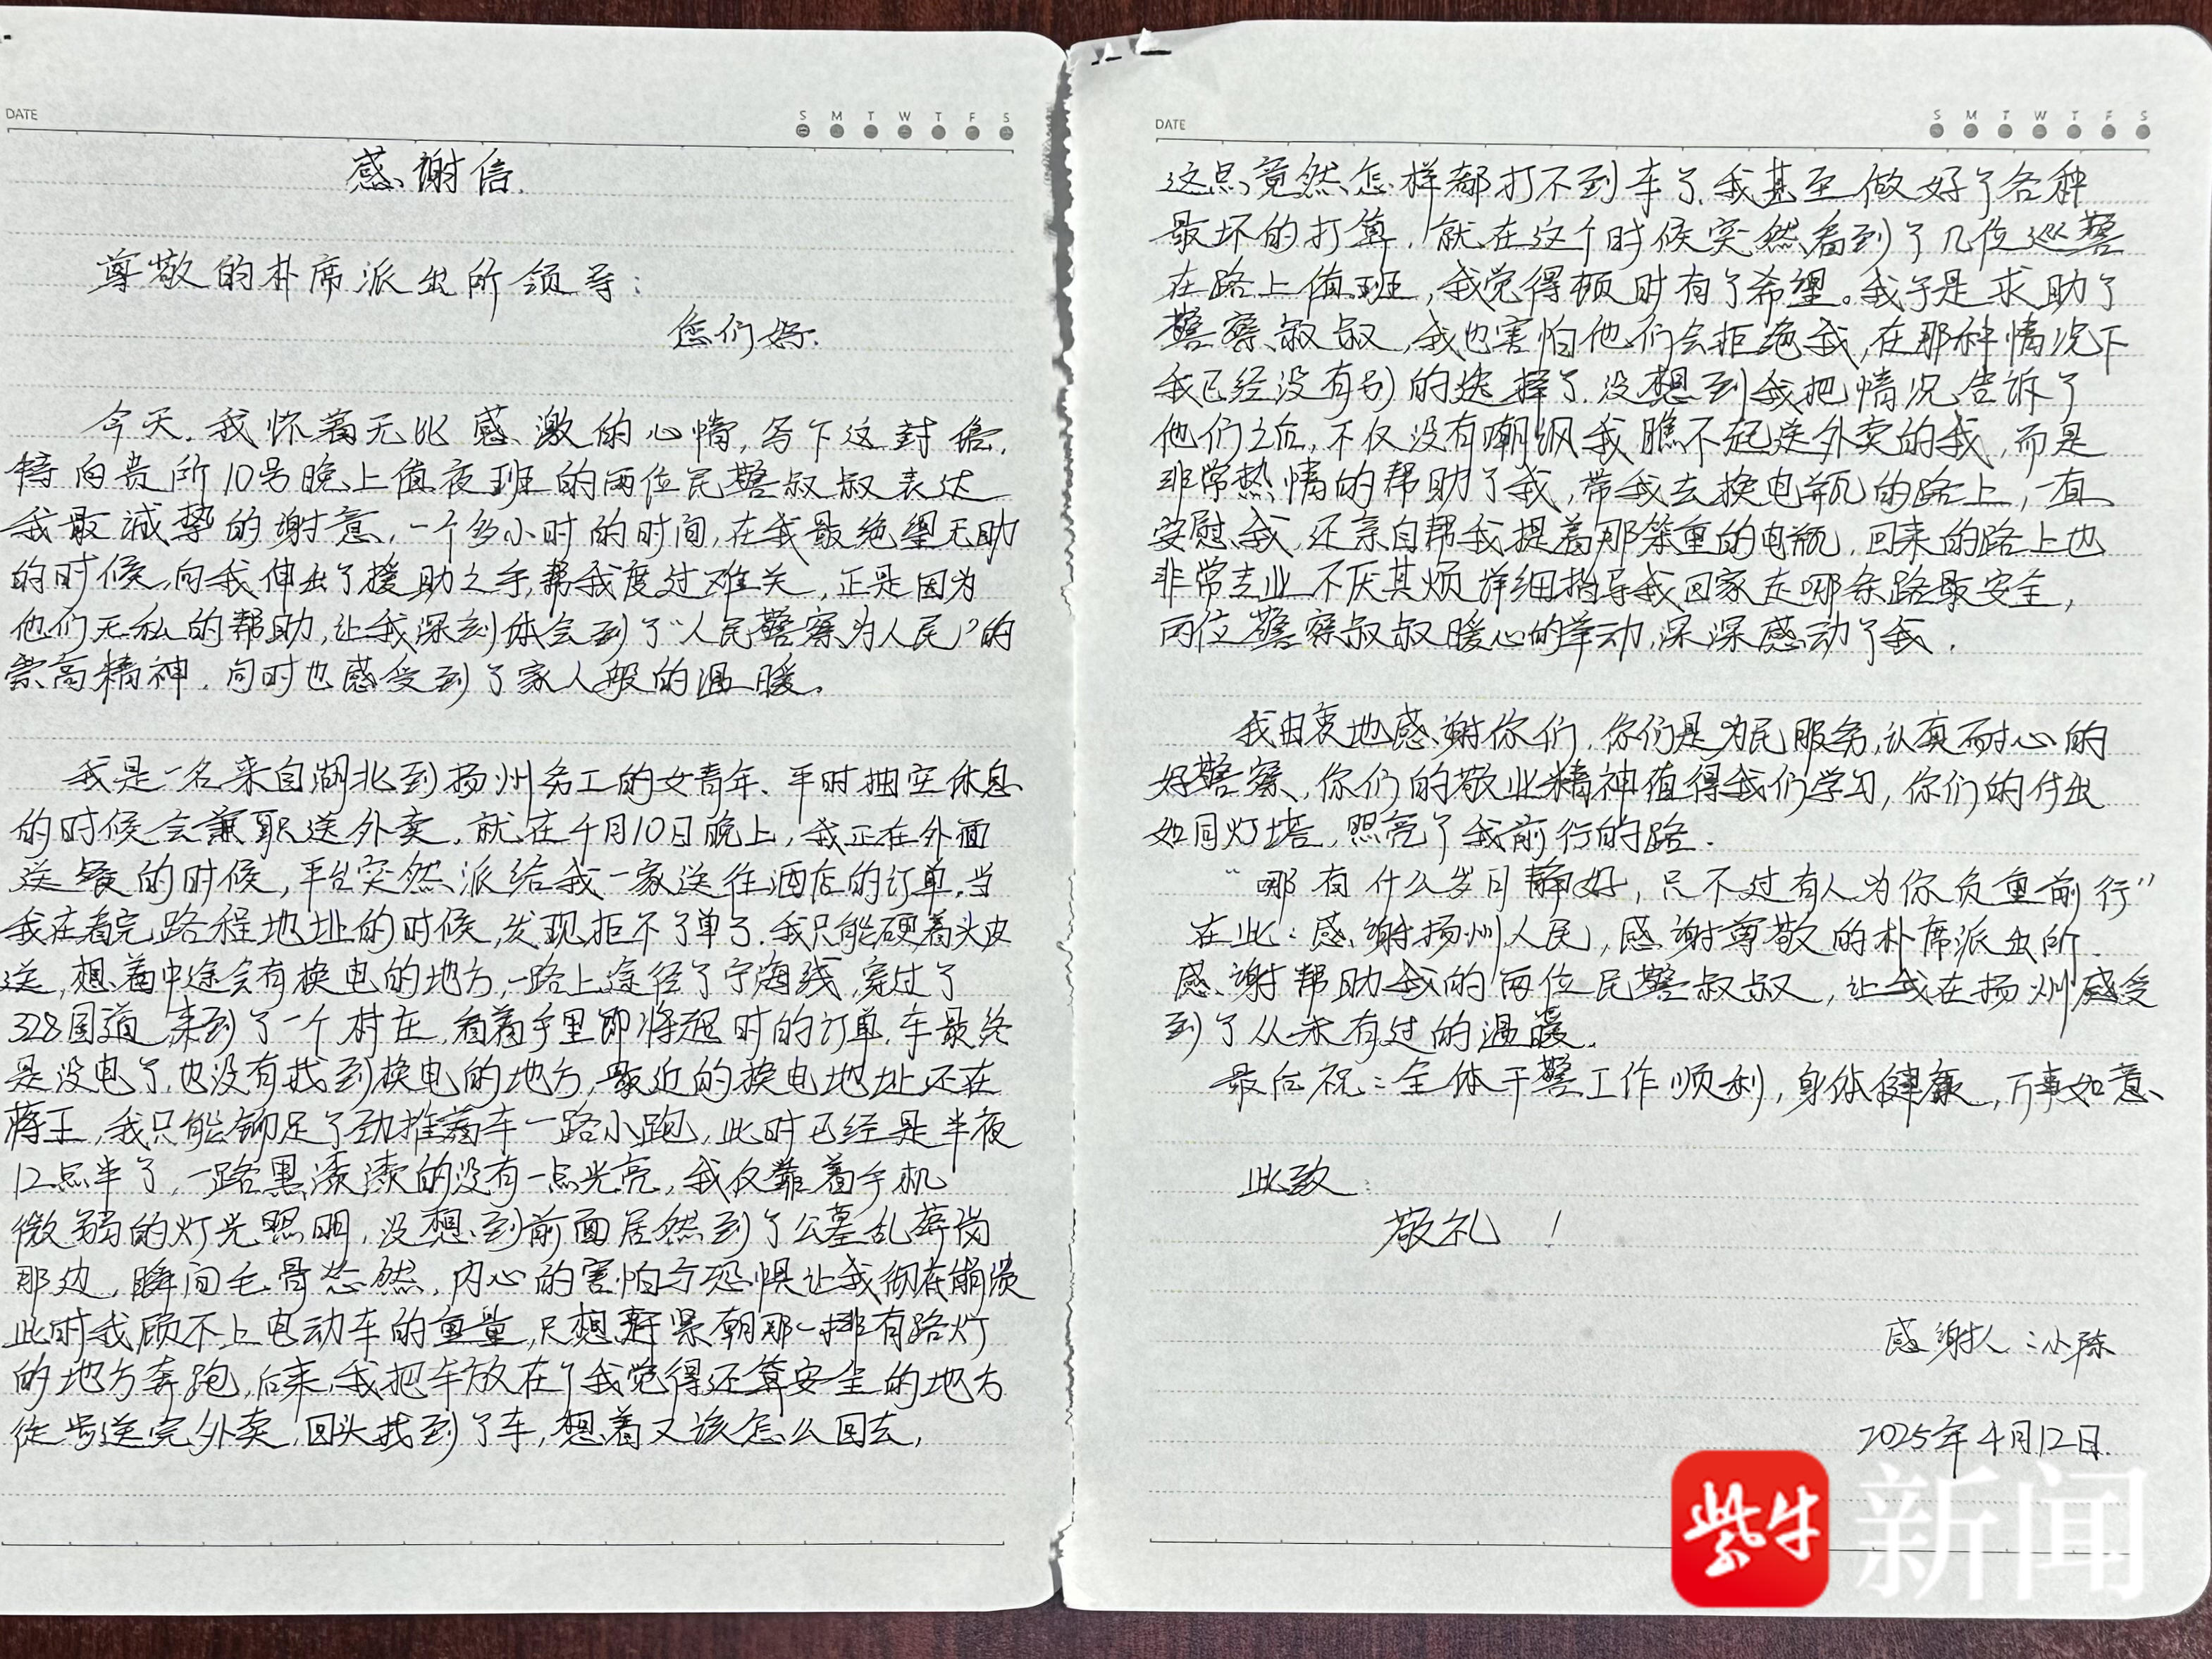 DATE
S M T W T F S
感谢信.
尊敬的朴席派出所领导:
您们好.
今天.我怀着无比感激的心情,写下这封信,
特向贵所10号晚上值夜班的两位民警叔叔表达
我最诚挚的谢意,一个多小时的时间,在我最绝望无助
的时候,向我伸出了援助之手,帮我度过难关,正是因为
他们无私的帮助,让我深刻体会到了“人民警察为人民”的
崇高精神.同时也感受到了家人般的温暖.
我是一名来自湖北到扬州务工的女青年、平时抽空休息
的时候会兼职送外卖.就在4月10日晚上,我正在外面
送餐的时候,平台突然派给我一家送往酒店的订单,当
我在看完路程地址的时候,发现拒不了单了.我只能硬着头皮
送,想着中途会有换电的地方,一路上途径了宁海线,穿过了
328国道,来到了一个村庄,看着手里即将超时的订单.车最终
是没电了,也没有找到换电的地方,最近的换电地址还在
蒋王,我只能铆足了劲推着车一路小跑,此时已经是半夜
12点半了,一路黑漆漆的没有一点光亮,我仅靠着手机
微弱的灯光照明,没想到前面居然到了公墓乱葬岗
那边,瞬间毛骨悚然,内心的害怕与恐惧让我彻底崩溃
此时我顾不上电动车的重量,只想赶紧朝那一排有路灯
的地方奔跑,后来,我把车放在了我觉得还算安全的地方
徒步送完外卖,回头找到了车,想着又该怎么回去,
DATE
S M T W T F S
这点竟然怎样都打不到车了.我甚至做好了各种
最坏的打算,就在这个时候突然看到了几位巡警
在路上值班,我觉得顿时有了希望。我于是求助了
警察叔叔,我也害怕他们会拒绝我,在那种情况下
我已经没有别的选择了.没想到我把情况告诉了
他们之后,不仅没有嘲讽我瞧不起送外卖的我,而是
非常热情的帮助了我,带我去换电瓶的路上,一直
安慰我,还亲自帮我提着那笨重的电瓶,回来的路上也
非常专业不厌其烦详细指导我回家走哪条路最安全,
两位警察叔叔暖心的举动,深深感动了我.
我由衷地感谢你们.你们是为民服务,认真耐心的
好警察、你们的敬业精神值得我们学习,你们的付出
如同灯塔,照亮了我前行的路.
“哪有什么岁月静好,只不过有人为你负重前行”
在此:感谢扬州人民,感谢尊敬的朴席派出所.
感谢帮助我的两位民警叔叔,让我在扬州感受
到了从未有过的温暖.
最后祝:全体干警工作顺利,身体健康,万事如意、
此致:
敬礼!
感谢人:小陈
2025年4月12日.
紫牛新闻